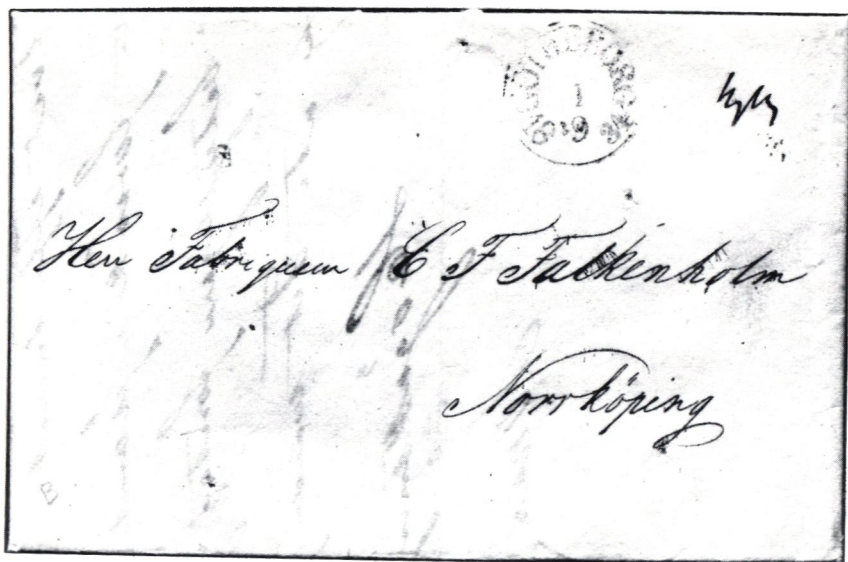 GÖTHEBORG
1
9
Herr Fabriqueur C F Falkenholm
Norrköping
B